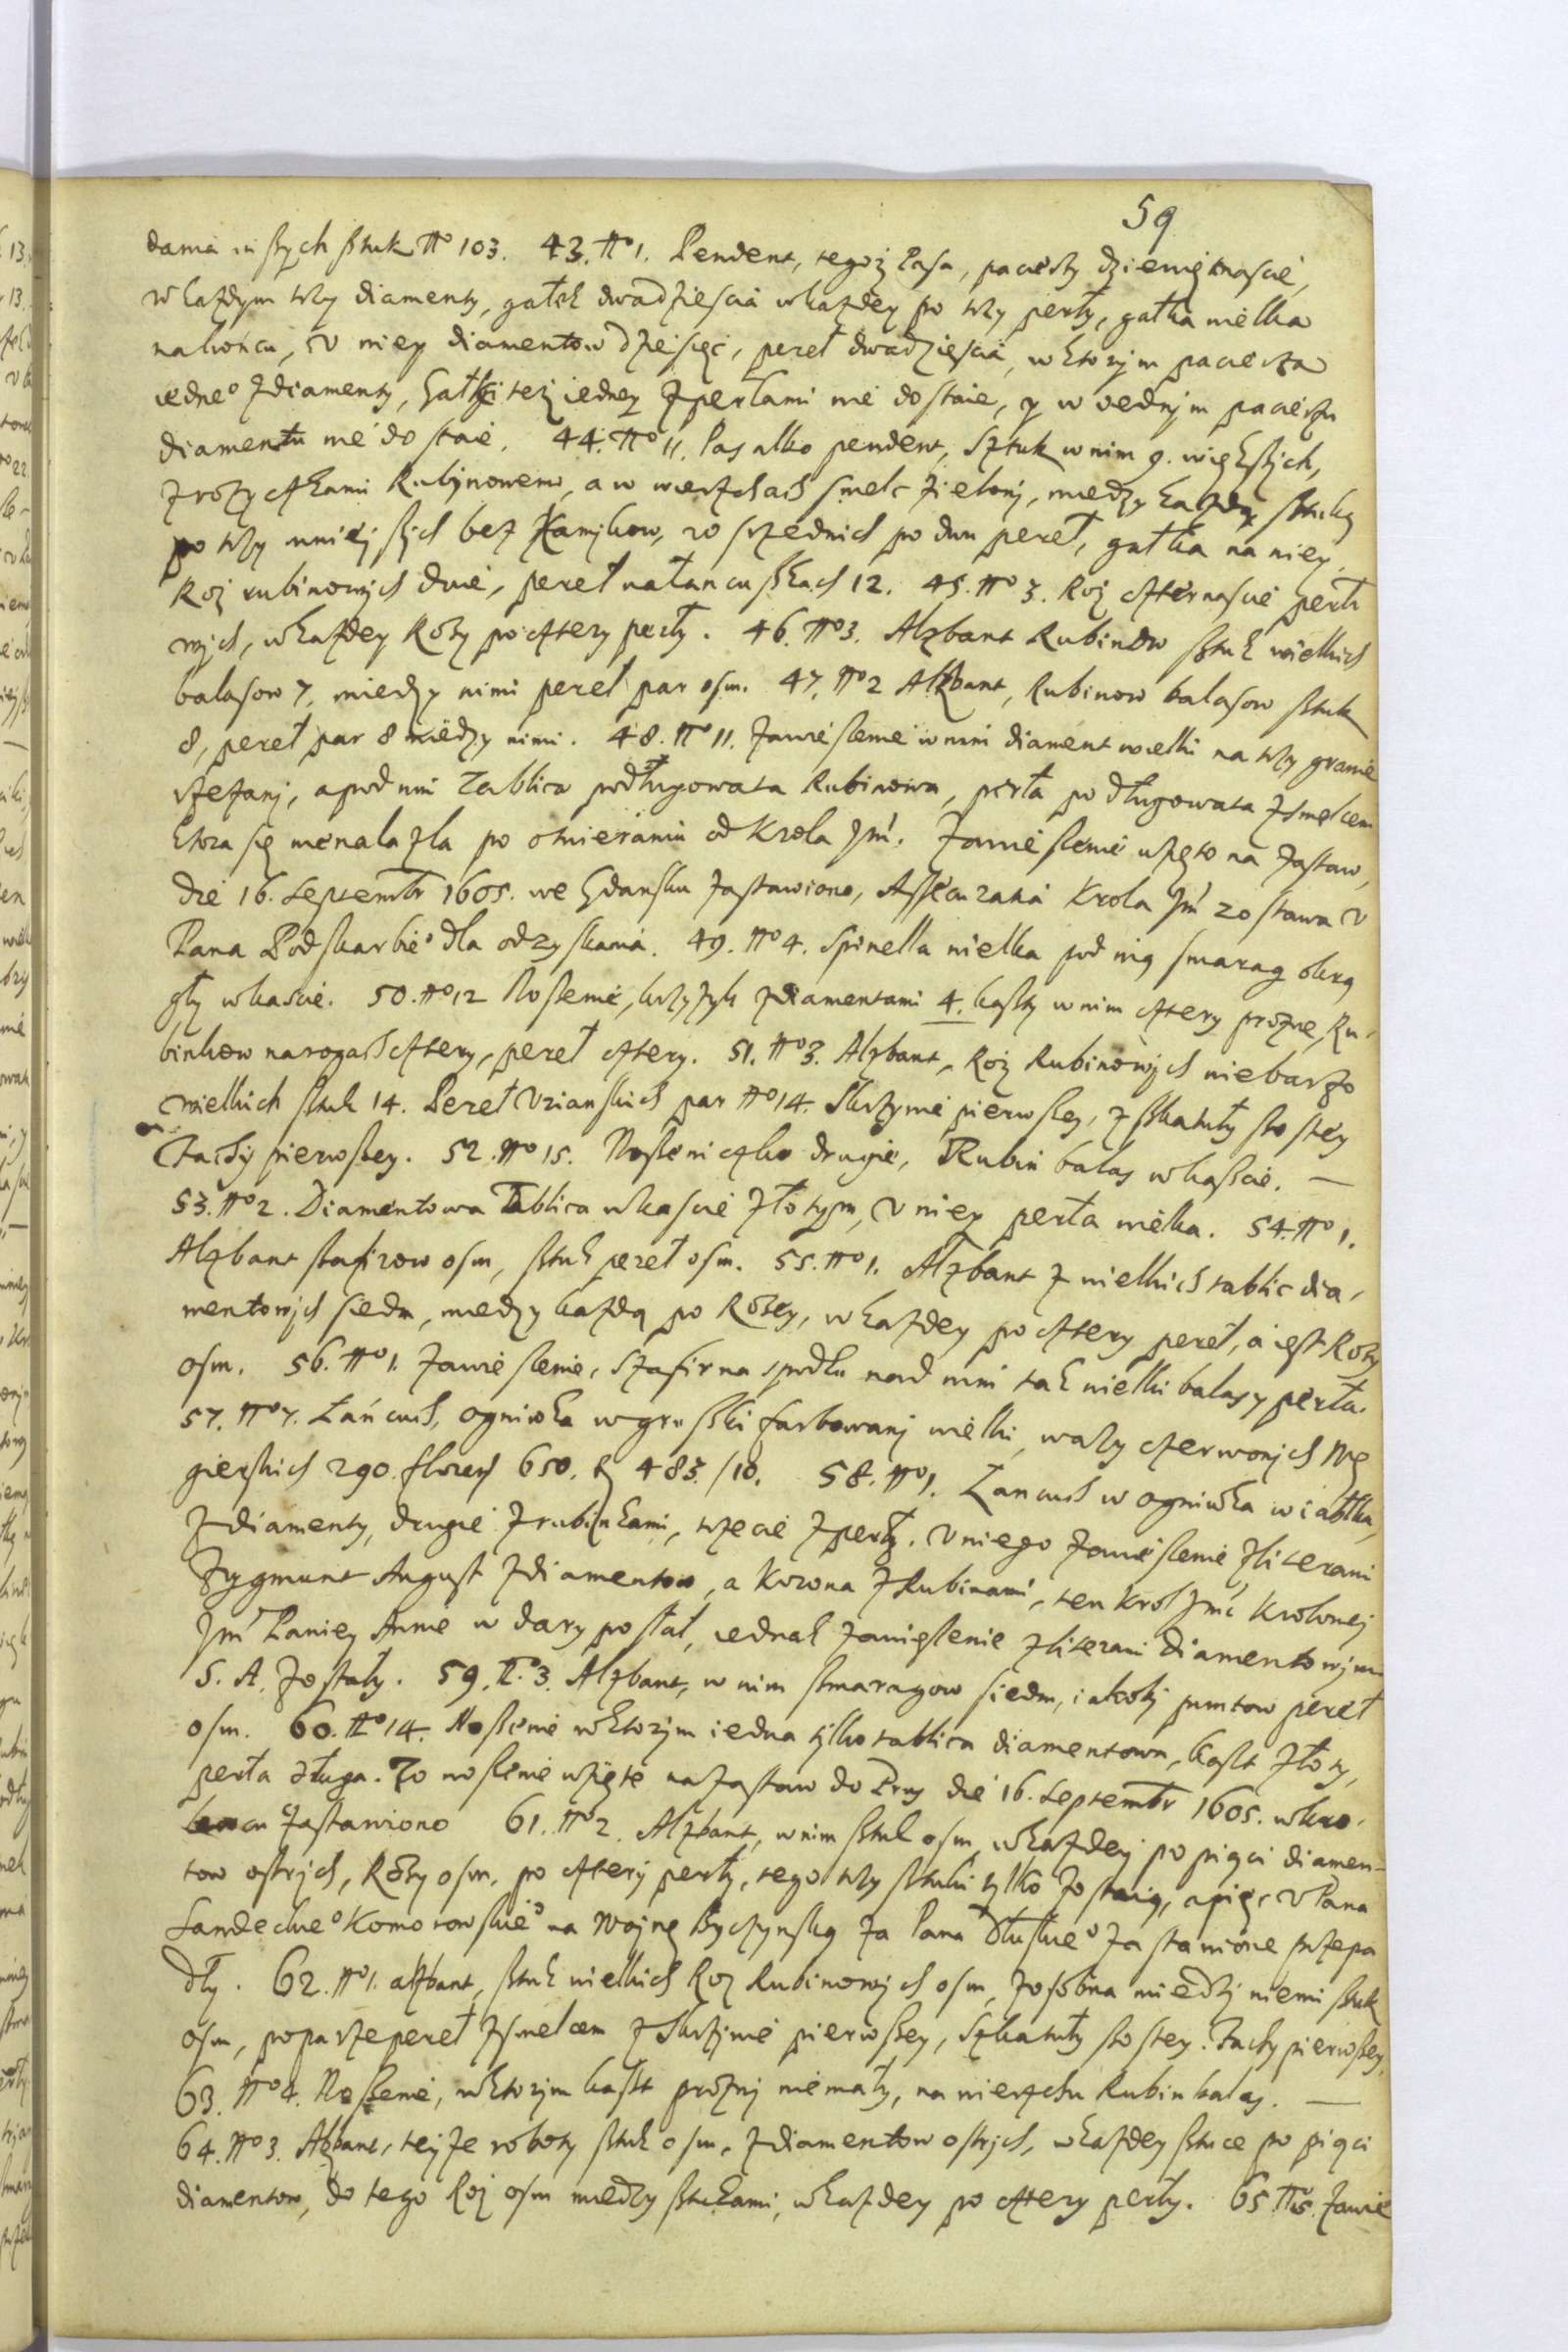 59
dama inszych sztuk No 103. 43. No 1. Pendent, tegoż Pasa, pacierzy dziewiętnascie,
w każdym trzy diamenty, gałek dwadziescia w każdey po trzy perły, gałka wielka
na końcu, v niey diamentow dziesięć, pereł dwadziescia, w ktorym pacierza
iedneo z diamenty, Gałki też iedney z perłami nie dostaie, y w iednym pacierzu
diamentu nie dostaie. 44. No 11. Pas albo pendent, Sztuk w nim 9. większych,
z rożyczkami Rubynowemi, a w wierzchach smelc zielony, między każdą sztuką
po trzy mnieyszych bez kamykow, 20 srzednich po dwu pereł, gałka na niey
Roż rubinowych dwie, pereł na łancuszkach 12. 45. No 3. Roż czternascie perło
wych, w każdey Roży po cztery perły. 46. No 3. Alzbant Rubinow sztuk wielkich
balasow 7, między nimi pereł par osm. 47. No 2 Alzbant, Rubinow balasow sztuk
8, pereł par 8 między nimi. 48. No 11. Zawieszenie w nim diament wielki na trzy granie
rzezany, a pod nim Tablica podługowata Rubinowa, perła podługowata z smelcem
ktora się nie nalazla po otwieraniu od Krola Jm. Zawieszenie wzięto na zastaw,
die 16. Septembr 1605. we Gdansku zastawiono, Assecuratia Krola Jm zostawa v
Pana Podskarbieo dla odzyskania. 49. No 4. Spinella wielka pod nią smarag okrą
gły w kascie. 50. No 12 Noszenie, krzyżyk z diamentami 4. kaszty w nim cztery prozne, Ru-
binkow na rogach cztery, pereł cztery. 51. No 3. Alzbant, Roż Rubinowych niebarzo
wielkich sztuk 14. Pereł Vrianskich par No 14. Skrzynie pierwszey, z szkatuły szostey
Tachy pierwszey. 52. No 15. Noszeniczko drugie, Rubin balas w kascie. —
53. No 2. Diamentowa Tablica w kascie złotym, v niey perła wielka. 54. No 1.
Alzbant szafirow osm, sztuk pereł osm. 55. No 1. Alzbant z wielkich tablic dia-
mentowych siedm, między każdą po Roży, w każdey po cztery pereł, a iest Roży
osm. 56. No 1. Zawieszenie, Szafir na spodku nad nim tak wielki balas y perła.
57. No 7. Łańcuch, ogniwka w gruszki farbowany wielki, waży czerwonych Wę
gierskich 290. florens 650. 483./10. 58. No 1. Łancuch w ogniwka w iabłka,
z diamenty, drugie z rubinkami, trzecie z perły. v niego zawieszenie z literami
Zygmunt August z diamentow, a Korona z Rubinami, ten Krol Jmc Krolowej
Jm Paniey Annie w dary posłał, iednak zawieszenie z literami diamentowymi
S. A. zostały. 59. No 3. Alzbant, w nim smaragow siedm, iakoby puntow pereł
osm. 60. No 14. Noszenie w ktorym iedna tylko tablica diamentowa, kaszt złoty,
perła długa. To noszenie wzięte na zastaw do Prus die 16. Septembr 1605. w kro-
zastawiono 61. No 2. Alzbant, w nim sztuk osm, w każdey po pięci diamen-
tow ostrych, Roży osm, po cztery perły, tego trzy sztuki tylko zostaią, a pięc v Pana
Komorowskieo na Woynę Byczynską za Pana Dłuskieo zastawione przepa
dły. 62. No 1. alzbant, sztuk wielkich Roz Rubinowych osm, zosobna miedzy niemi sztuk
osm, po parze pereł z smelcem z Skrzynie pierwszey, Szkatuły szostey. Tachy pierwszey.
63. No 4. Noszenie, w ktorym kaszt prozny niemały, na wierzchu Rubin balas. —
64. No 3. Alzbant, teyże roboty sztuk osm, z diamentow ostrych, w każdey sztuce po pięci
diamentow, do tego Roż osm między sztukami, w każdey po cztery perły. 65 No 5. Zawie